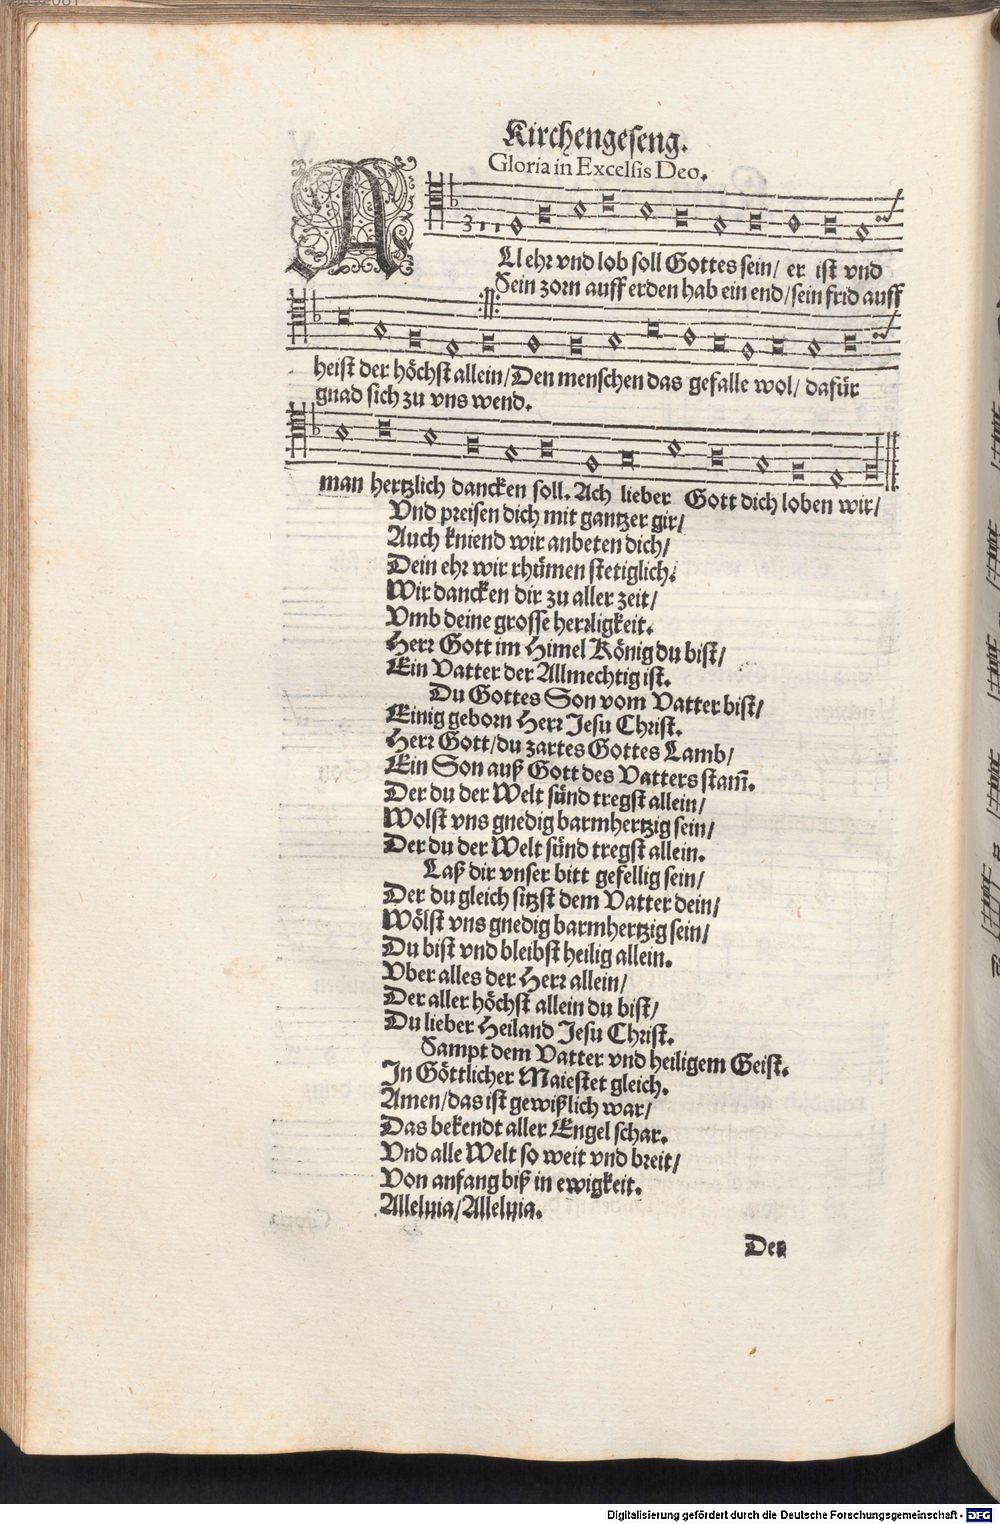 Kirchengeseng.
Gloria in Excelsis Deo.
ALl ehr vnd lob soll Gottes sein/ er ist vnd
Sein zorn auff erden hab ein end/sein frid auff
heist der höchst allein/Den menschen das gefalle wol/ dafür
gnad sich zu vns wend.
man hertzlich dancken soll. Ach lieber Gott dich loben wir/
Vnd preisen dich mit gantzer gir/
Auch kniend wir anbeten dich/
Dein ehr wir rhümen stetiglich.
Wir dancken dir zu aller zeit/
Vmb deine grosse herrligkeit.
Herr Gott im Himel König du bist/
Ein Vatter der Allmechtig ist.
Du Gottes Son vom Vatter bist/
Einig geborn Herr Jesu Christ.
Herr Gott/du zartes Gottes Lamb/
Ein Son auß Gott des Vatters stam̄.
Der du der Welt sünd tregst allein/
Wolst vns gnedig barmhertzig sein/
Der du der Welt sünd tregst allein.
Laß dir vnser bitt gefellig sein/
Der du gleich sitzst dem Vatter dein/
Wölst vns gnedig barmhertzig sein/
Du bist vnd bleibst heilig allein.
Vber alles der Herr allein/
Der aller höchst allein du bist/
Du lieber Heiland Jesu Christ.
Sampt dem Vatter vnd heiligem Geist.
In Göttlicher Maiestet gleich.
Amen/das ist gewißlich war/
Das bekendt aller Engel schar.
Vnd alle Welt so weit vnd breit/
Von anfang biß in ewigkeit.
Alleluia/Alleluia.
Der
Digitalisierung gefördert durch die Deutsche Forschungsgemeinschaft - DFG